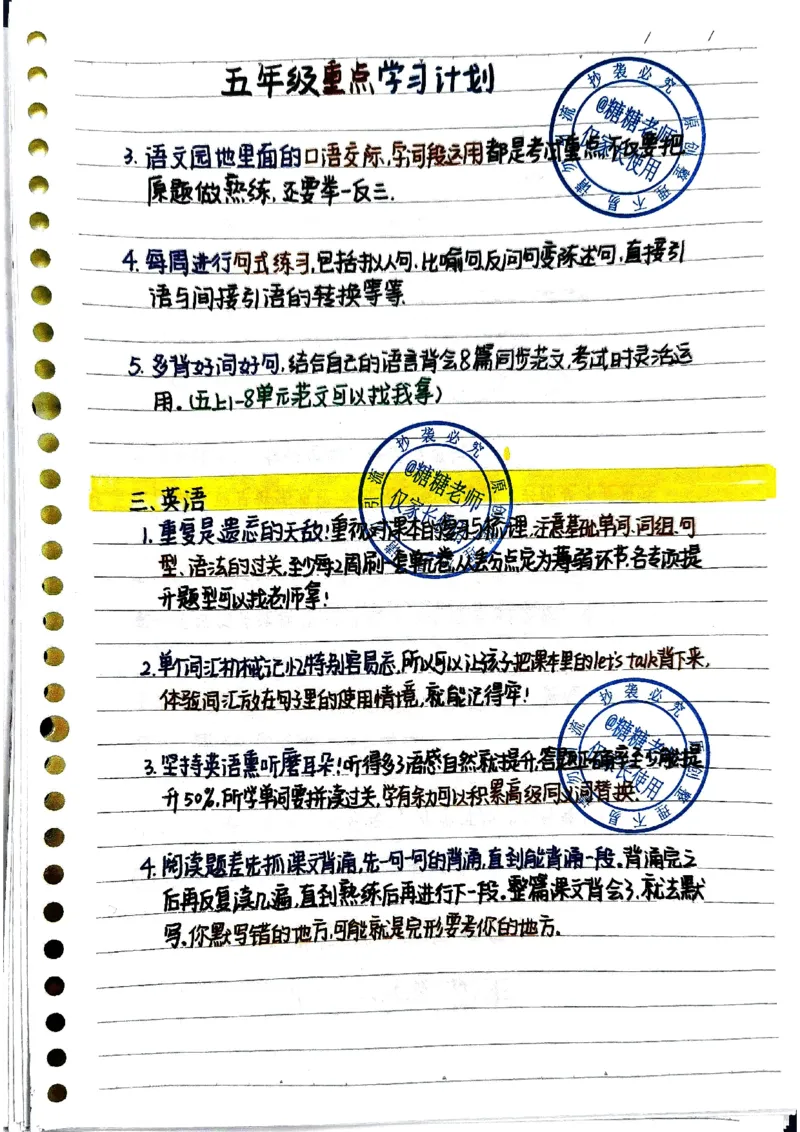 五年级重点学习计划
3. 语文园地里面的口语交际,字词段运用都是考试重点不仅要把
原题做熟练,还要举一反三.
4. 每周进行句式练习,包括拟人句.比喻句反问句变陈述句,直接引
语与间接引语的转换等等.
5. 多背好词好句,结合自己的语言背会8篇同步范文,考试时灵活运
用。(五上1-8单元范文可以找我拿)
三、英语
1. 重复是遗忘的天敌!重视对课本的复习与梳理,注意基础单词.词组.句
型、语法的过关,至少每2周刷一套单元卷,从丢分点定为薄弱环节,各专项提
升题型可以找老师拿!
2. 单个词汇机械记忆特别容易忘,所以可以让孩子把课本里的let's talk背下来,
体验词汇放在句子里的使用情境,就能记得牢!
3. 坚持英语熏听磨耳朵!听得多了语感自然就提升,答题正确率至少能提
升50%,所学单词要拼读过关,学有余力可以积累高级同义词替换.
4. 阅读题差先抓课文背诵,先一句一句的背诵,直到能背诵一段。背诵完之
后再反复读几遍,直到熟练后再进行下一段。整篇课文背会了,就去默
写、你默写错的地方,可能就是完形要考你的地方.
抄袭必究 原创整理不易 请勿引流
@糖糖老师
仅家长使用
抄袭必究 原创
引流
@糖糖老师
仅家长使用
抄袭必究 原创整理不易 请勿引流
@糖糖老师
仅家长使用